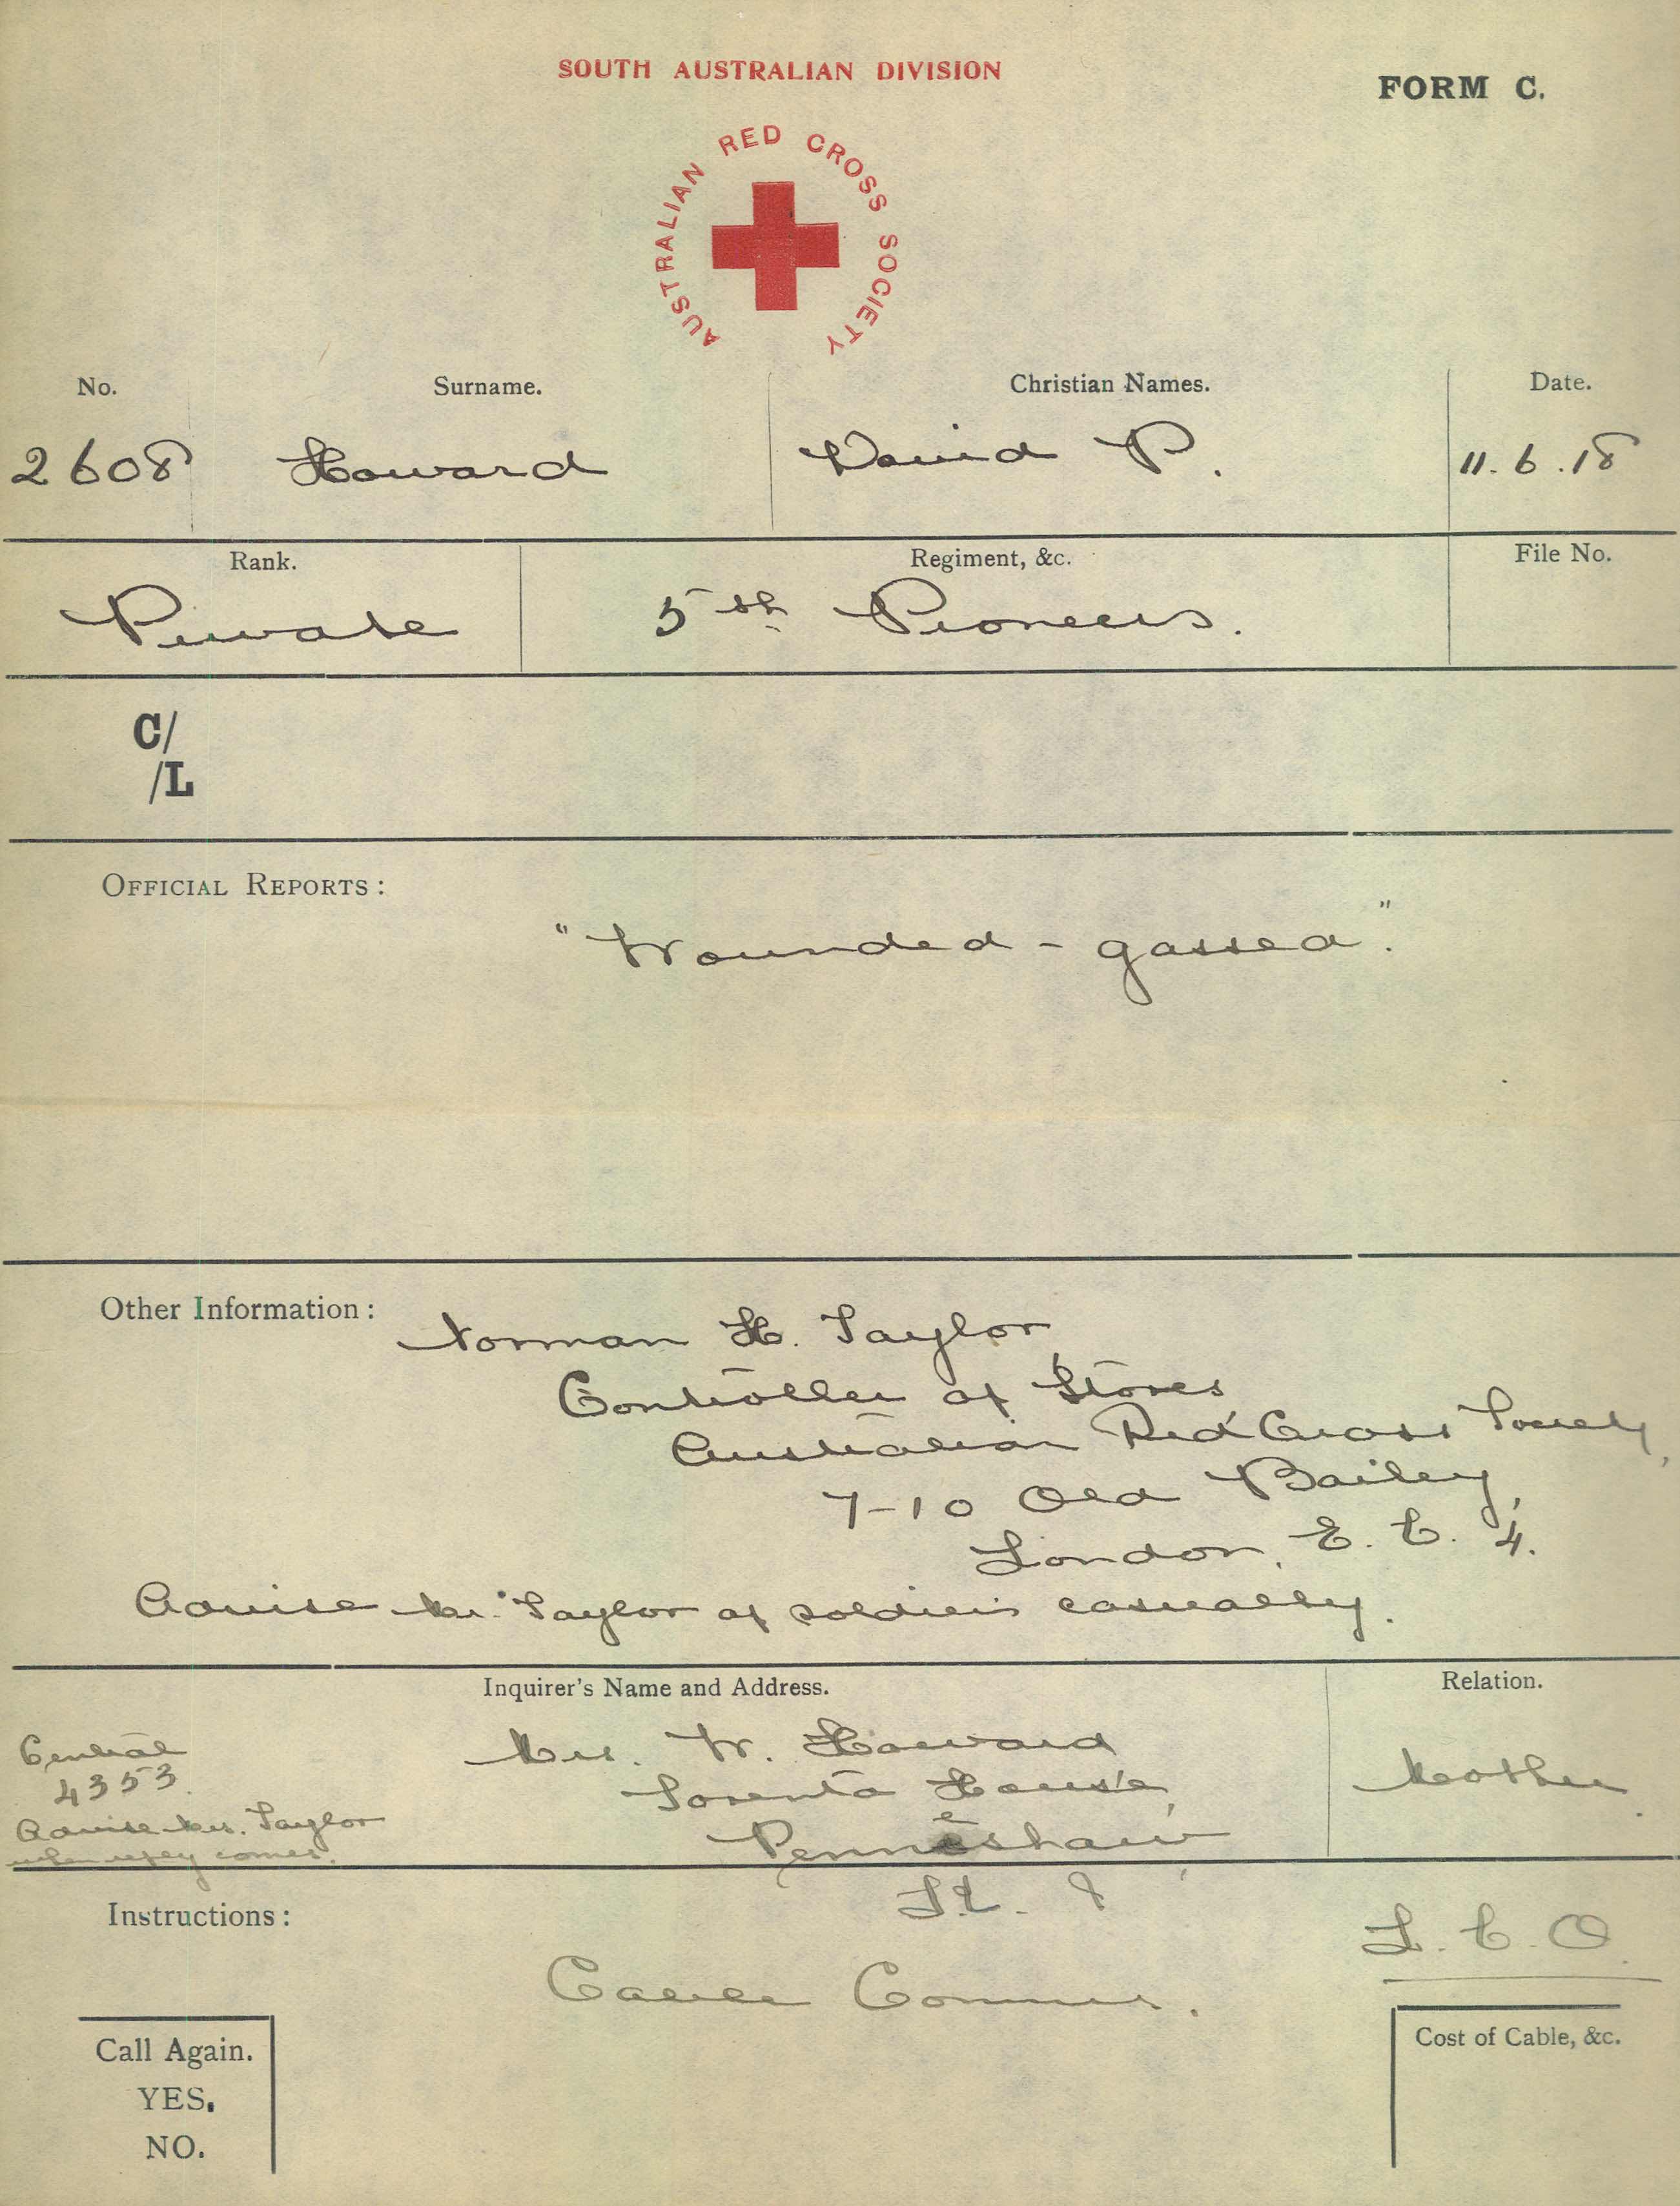 SOUTH AUSTRALIAN DIVISION
FORM C.
AUSTRALIAN RED CROSS SOCIETY
No. Surname. Christian Names. Date.
2608 Howard David P. 11.6.18
Rank. Regiment, &c. File No.
Private 5th Pioneers.
C/
/L
OFFICIAL REPORTS:
"Wounded - gassed."
Other Information:
Norman H. Taylor,
Controller of Stores
Australian Red Cross Society,
7-10 Old Bailey,
London, E. C. 4.
Advise Mr. Taylor of soldier's casualty.
Inquirer's Name and Address. Relation.
Mrs. W. Howard Mother.
Sorento House,
Penneshaw,
Central
4353.
Advise Mrs. Taylor
when reply comes.
Instructions:
L. C. O.
Cable Commrs.
Call Again.
YES.
NO.
Cost of Cable, &c.